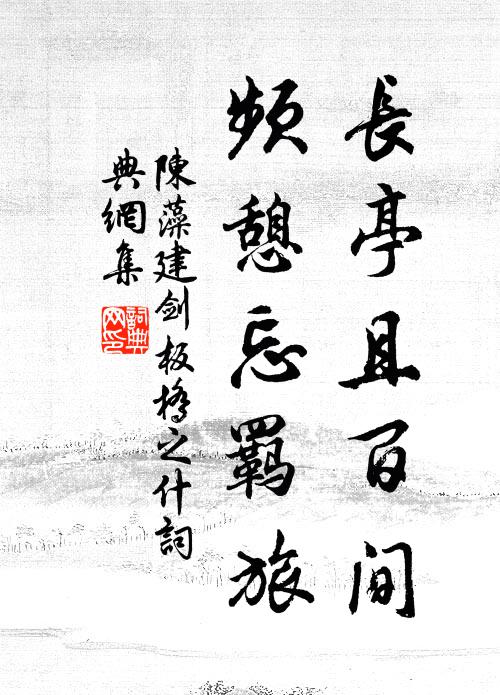 長亭且百間
頻憩忘羈旅
陳藻建劍板橋之什詞
典網集
詞典
网印